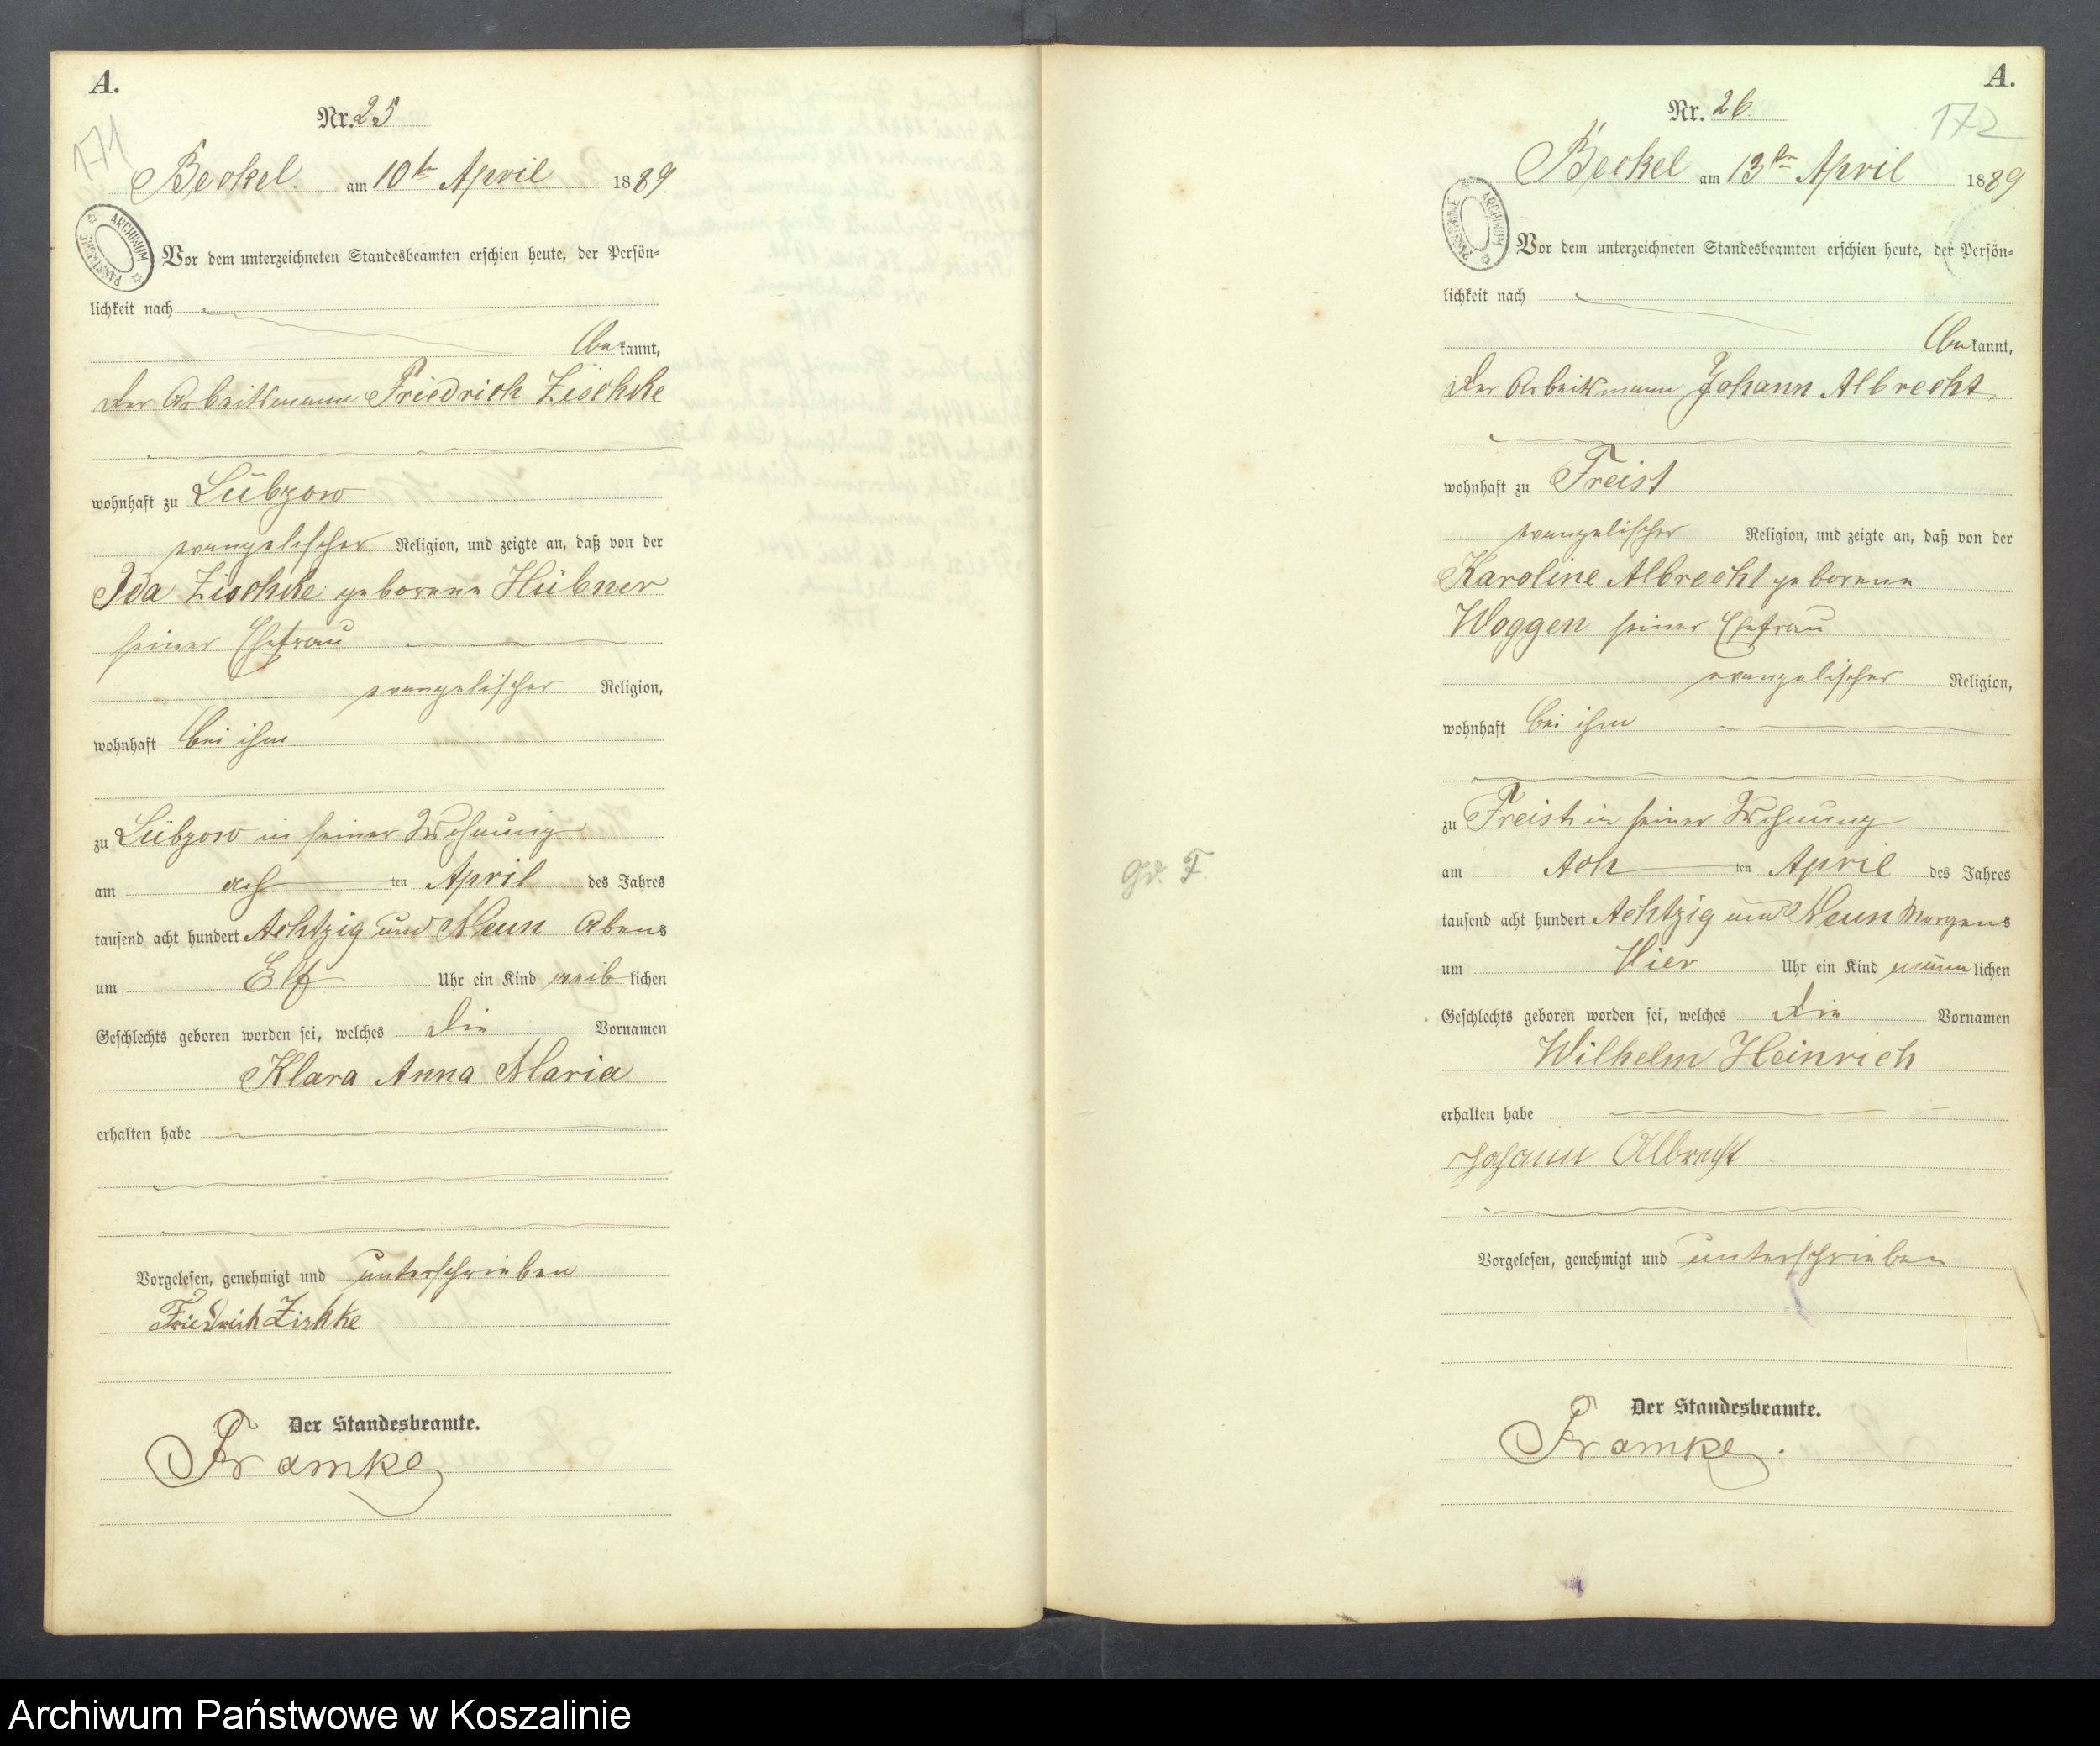 A.
Nr. 25
171
Beckel. am 10ten April 1889.
ARCHIWUM PAŃSTWOWE
Vor dem unterzeichneten Standesbeamten erschien heute, der Persön-
lichkeit nach
bekannt,
der Arbeitsmann Friedrich Zischke
wohnhaft zu Lübzow
evangelischer Religion, und zeigte an, daß von der
Ida Zischke geborene Hübner
seiner Ehefrau
evangelischer Religion,
wohnhaft bei ihm
zu Lübzow in seiner Wohnung
am ach ten April des Jahres
tausend acht hundert Achtzig und Neun Abens
um Elf Uhr ein Kind weiblichen
Geschlechts geboren worden sei, welches die Vornamen
Klara Anna Maria
erhalten habe
Vorgelesen, genehmigt und unterschrieben
Friedrich Zischke
Der Standesbeamte.
Framke
A.
Nr. 26.
172
Beckel am 13ten April 1889
ARCHIWUM PAŃSTWOWE
Vor dem unterzeichneten Standesbeamten erschien heute, der Persön-
lichkeit nach
bekannt,
der Arbeitsmann Johann Albrecht
wohnhaft zu Freist
evangelischer Religion, und zeigte an, daß von der
Karoline Albrecht geborene
Woggen seiner Ehefrau
evangelischer Religion,
wohnhaft bei ihm
zu Freist in seiner Wohnung
am Ach ten April des Jahres
tausend acht hundert Achtzig und Neun Morgens
um Vier Uhr ein Kind männlichen
Geschlechts geboren worden sei, welches die Vornamen
Wilhelm Heinrich
erhalten habe
Johann Albrecht
Vorgelesen, genehmigt und unterschrieben
Der Standesbeamte.
Framke.
Gd. F.
Archiwum Państwowe w Koszalinie